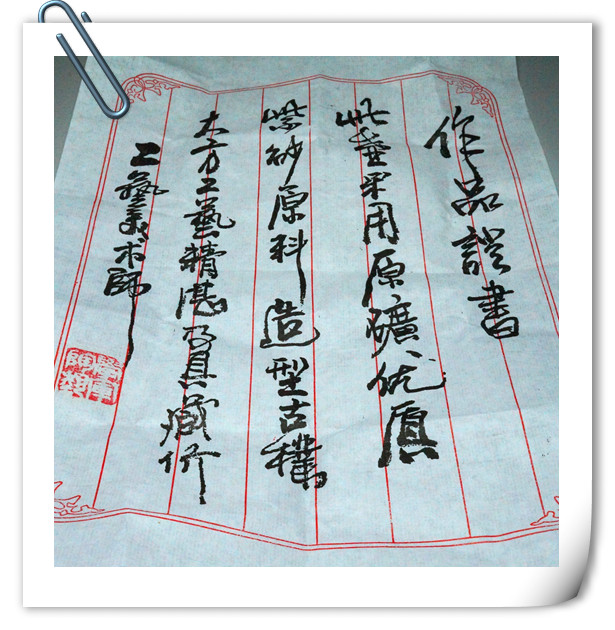 作品證書
此壶采用原礦优质
紫砂原料造型古樸
大方工藝精湛乃具藏价
工藝美术師